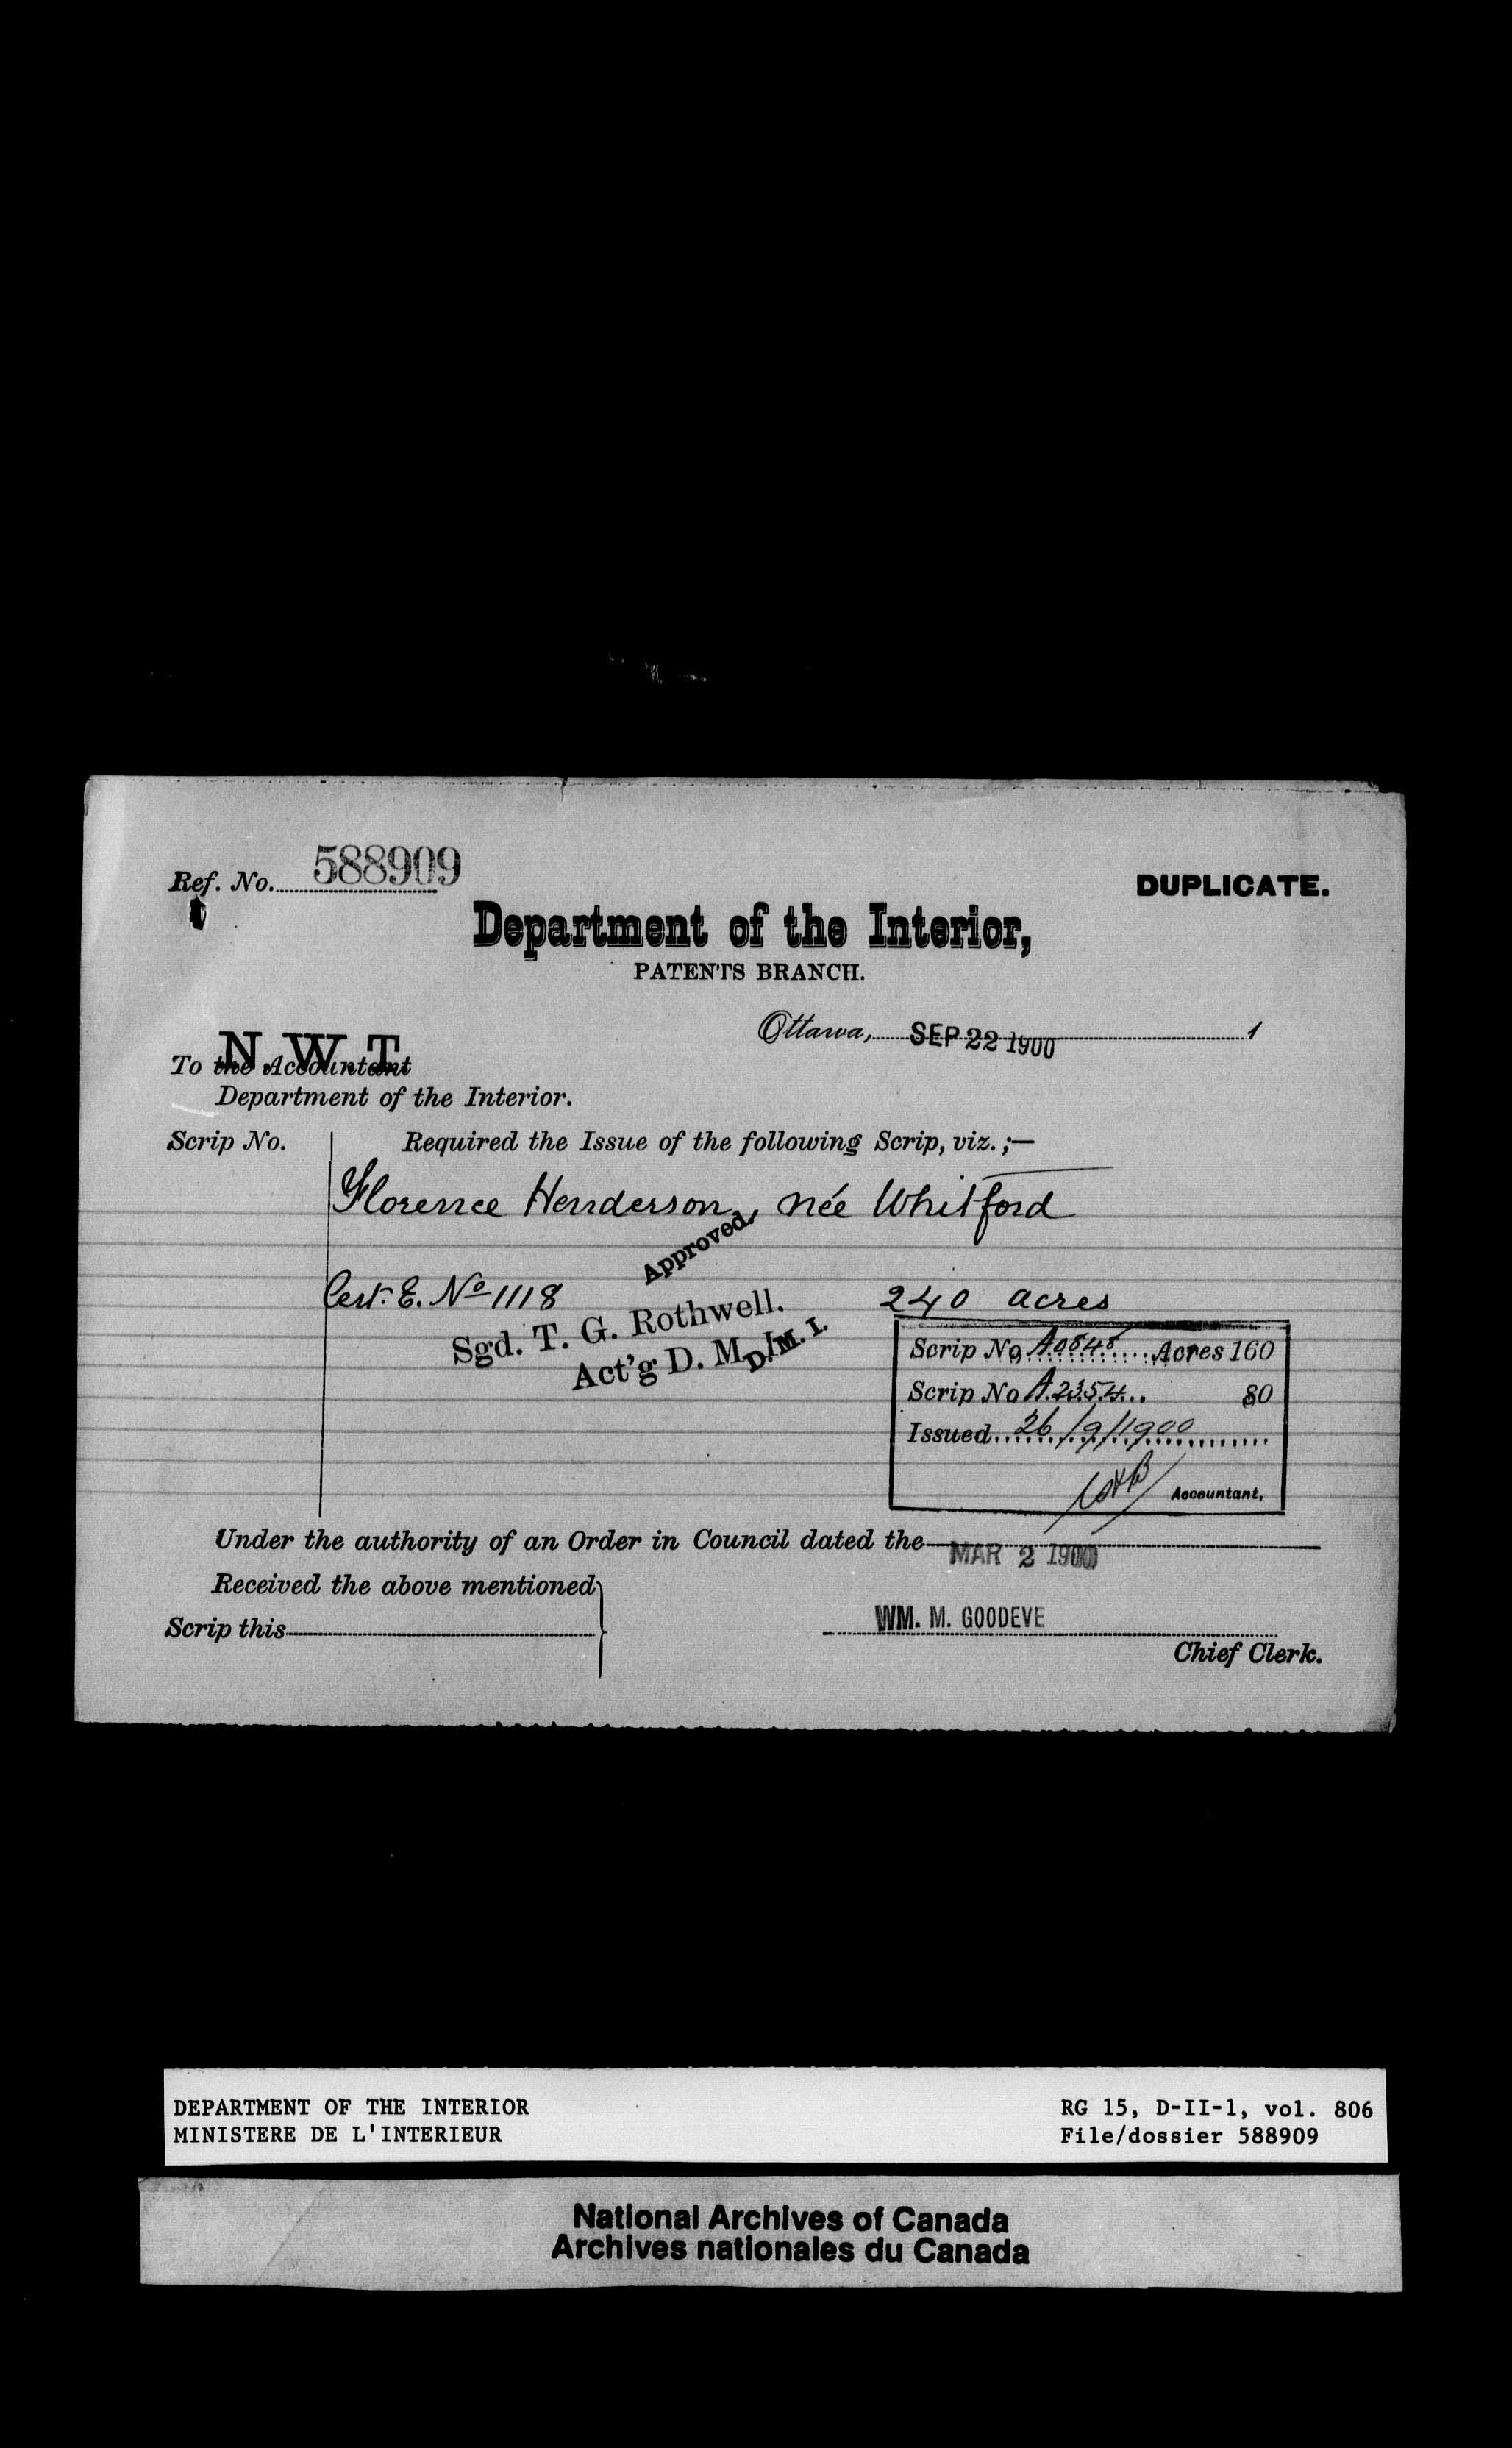 Ref. No. 588909
DUPLICATE.
Department of the Interior,
PATENTS BRANCH.
Ottawa, SEP 22 1900 1
N. W. T.
To the Accountant
Department of the Interior.
Scrip No. Required the Issue of the following Scrip, viz. ;—
Florence Henderson, née Whitford
Approved,
Cert. E. No 1118 240 acres
Sgd. T. G. Rothwell.
Act'g D. M. D. M. I.
Scrip No A0848 Acres 160
Scrip No A.2354 80
Issued 26/9/1900
Accountant.
Under the authority of an Order in Council dated the MAR 2 1900
Received the above mentioned
Scrip this
WM. M. GOODEVE
Chief Clerk.
DEPARTMENT OF THE INTERIOR RG 15, D-II-1, vol. 806
MINISTERE DE L'INTERIEUR File/dossier 588909
National Archives of Canada
Archives nationales du Canada